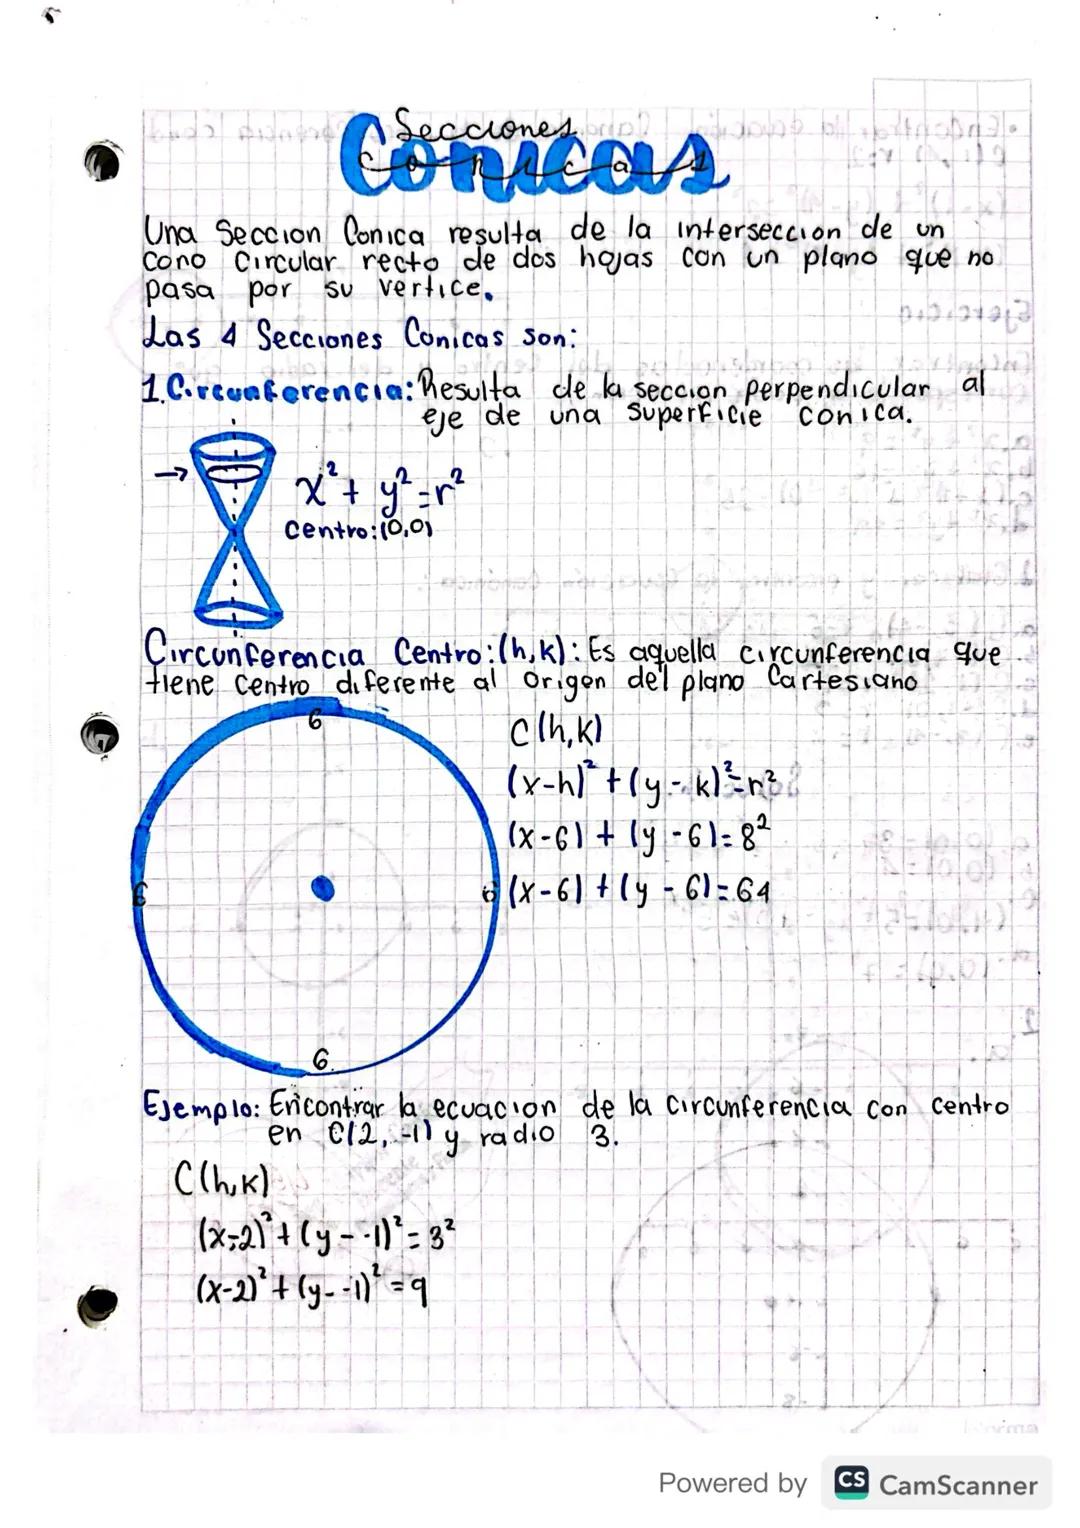 Secciones
Conicas
Conicas
Una Seccion Conica resulta de la interseccion de un
cono Circular recto de dos hojas con un plano que no
pasa por su vertice.
Las 4 Secciones Conicas son:
1.Circunferencia: Resulta de la seccion perpendicular al
eje de una superficie conica.
x²+ y²=r²
Centro:(0,0)
Circunferencia Centro:(h,k): Es aquella circunferencia que
tiene centro diferente al origen del plano Cartesiano
6
C(h,k)
(x-h)²+(y-k)²=r²
(x-6)+(y-6)=8²
6
6
(x-6)+(y-6)=64
6
Ejemplo: Encontrar la ecuacion de la circunferencia con centro
en C(2,-1) y radio 3.
C(h,k)
(x-2)²+(y--1)²=3²
(x-2)²+(y--1)²=9
Powered by CS CamScanner